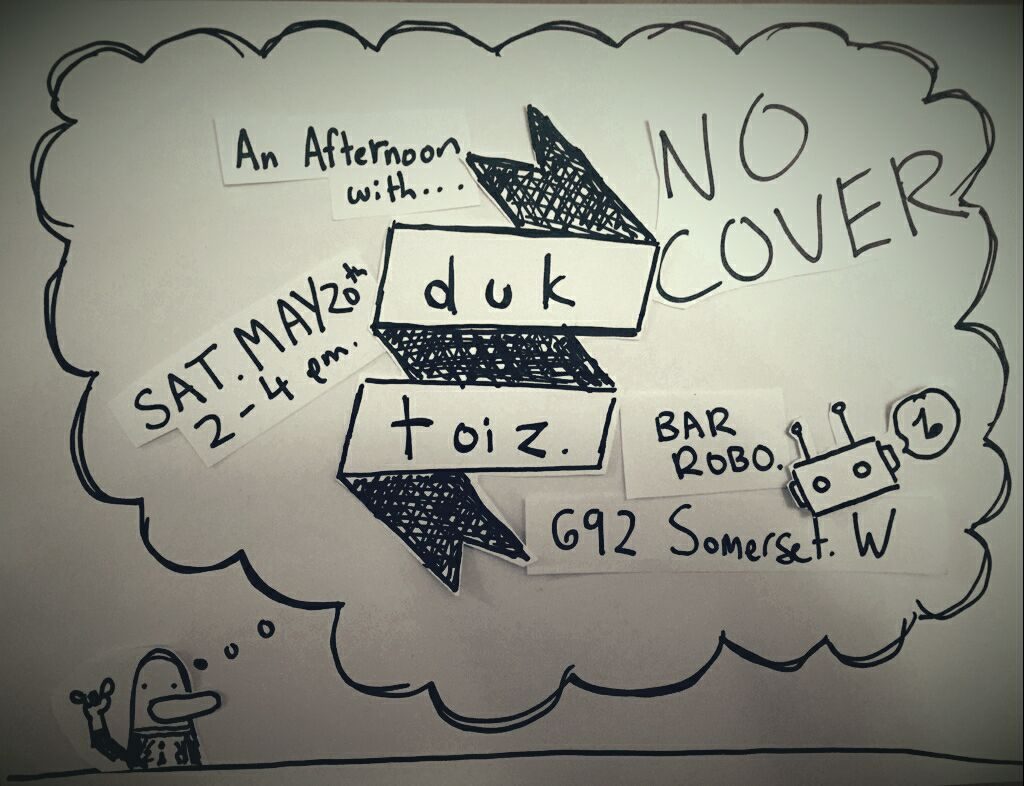 An Afternoon
with...
duk
toiz.
NO
COVER
SAT. MAY 20th
2-4 pm.
BAR
ROBO.
692 Somerset. W